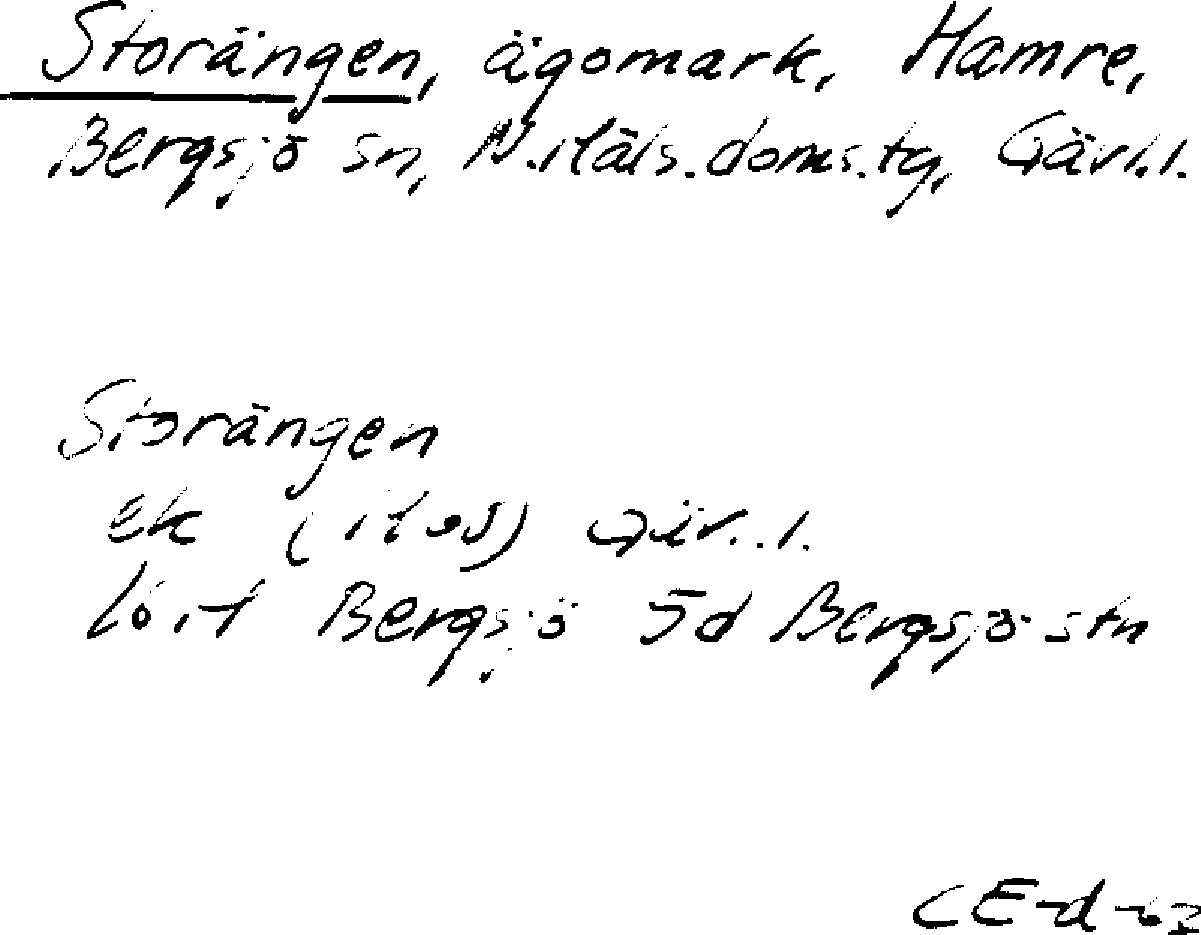 Storängen, ägomark, Hamre,
Bergsjö sn, N. Häls. doms. tg, Gävl. l.
Storängen
ek Gävl. l.
Bergsjö 5d Bergsjö stn
CE-d-62